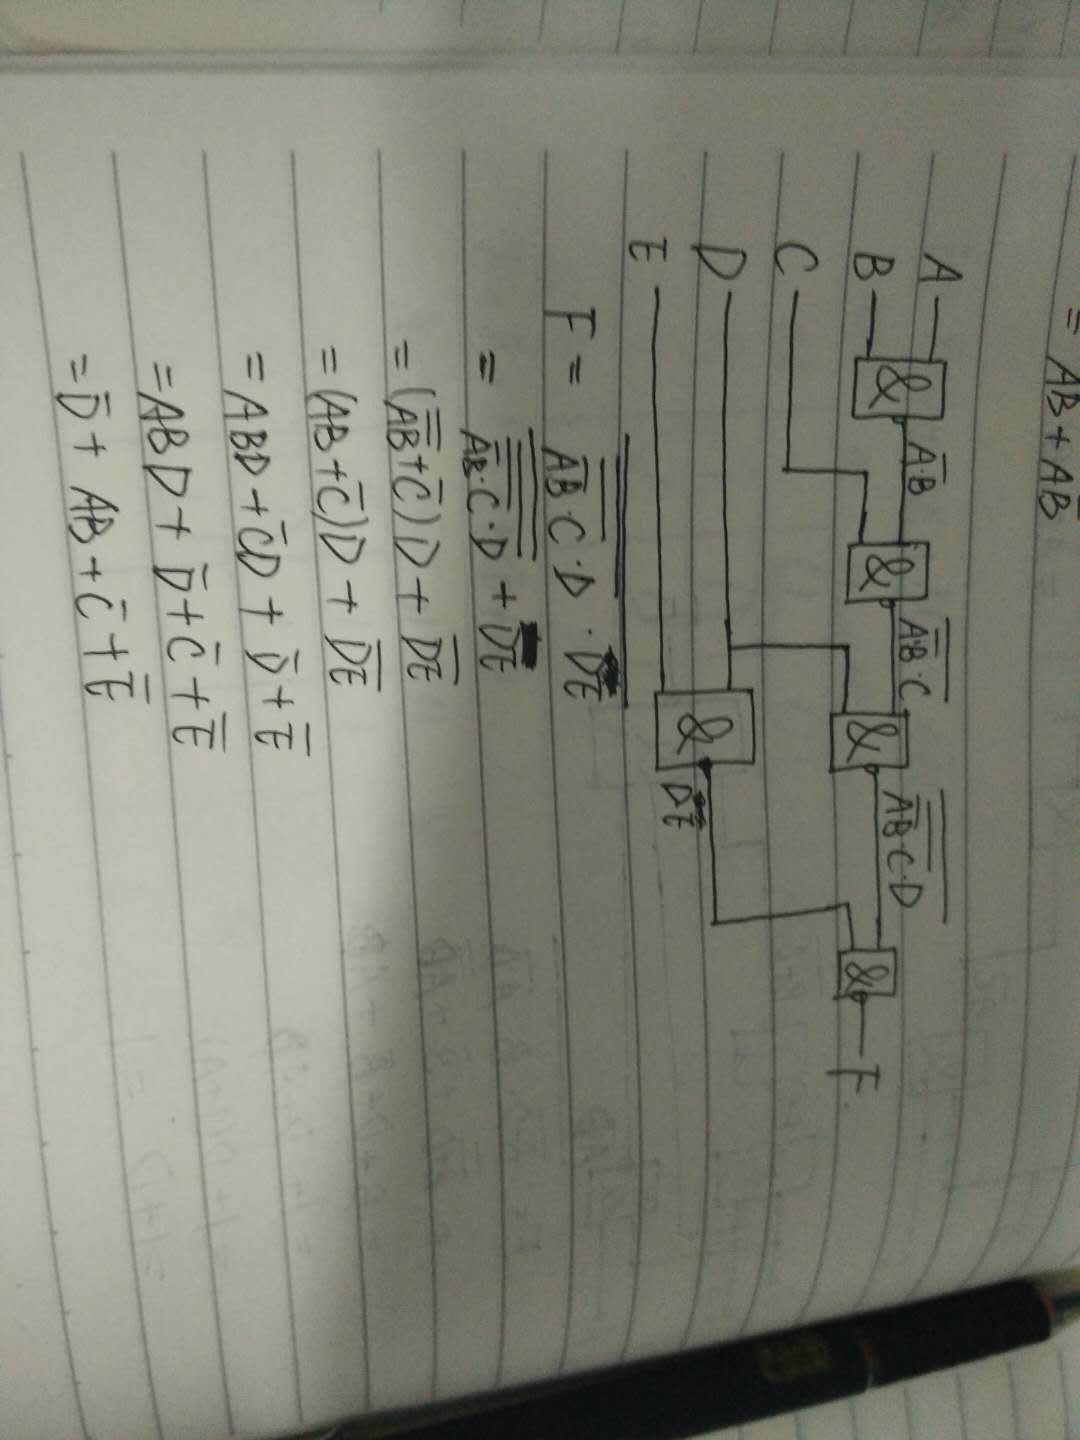 = AB + AB
A
B
C
D
E
&
A̅B̅
&
A̅B̅·C
&
A̅B̅·C·D
&
DE
&
F.
F = \overline{\overline{\overline{\overline{AB}·C}·D}·DE}
= \overline{\overline{\overline{\overline{AB}·C}·D}} + \overline{DE}
= (\overline{\overline{AB}} + \overline{C})D + \overline{DE}
= (AB + \overline{C})D + \overline{DE}
= ABD + \overline{C}D + \overline{D} + \overline{E}
= ABD + \overline{D} + \overline{C} + \overline{E}
= \overline{D} + AB + \overline{C} + \overline{E}